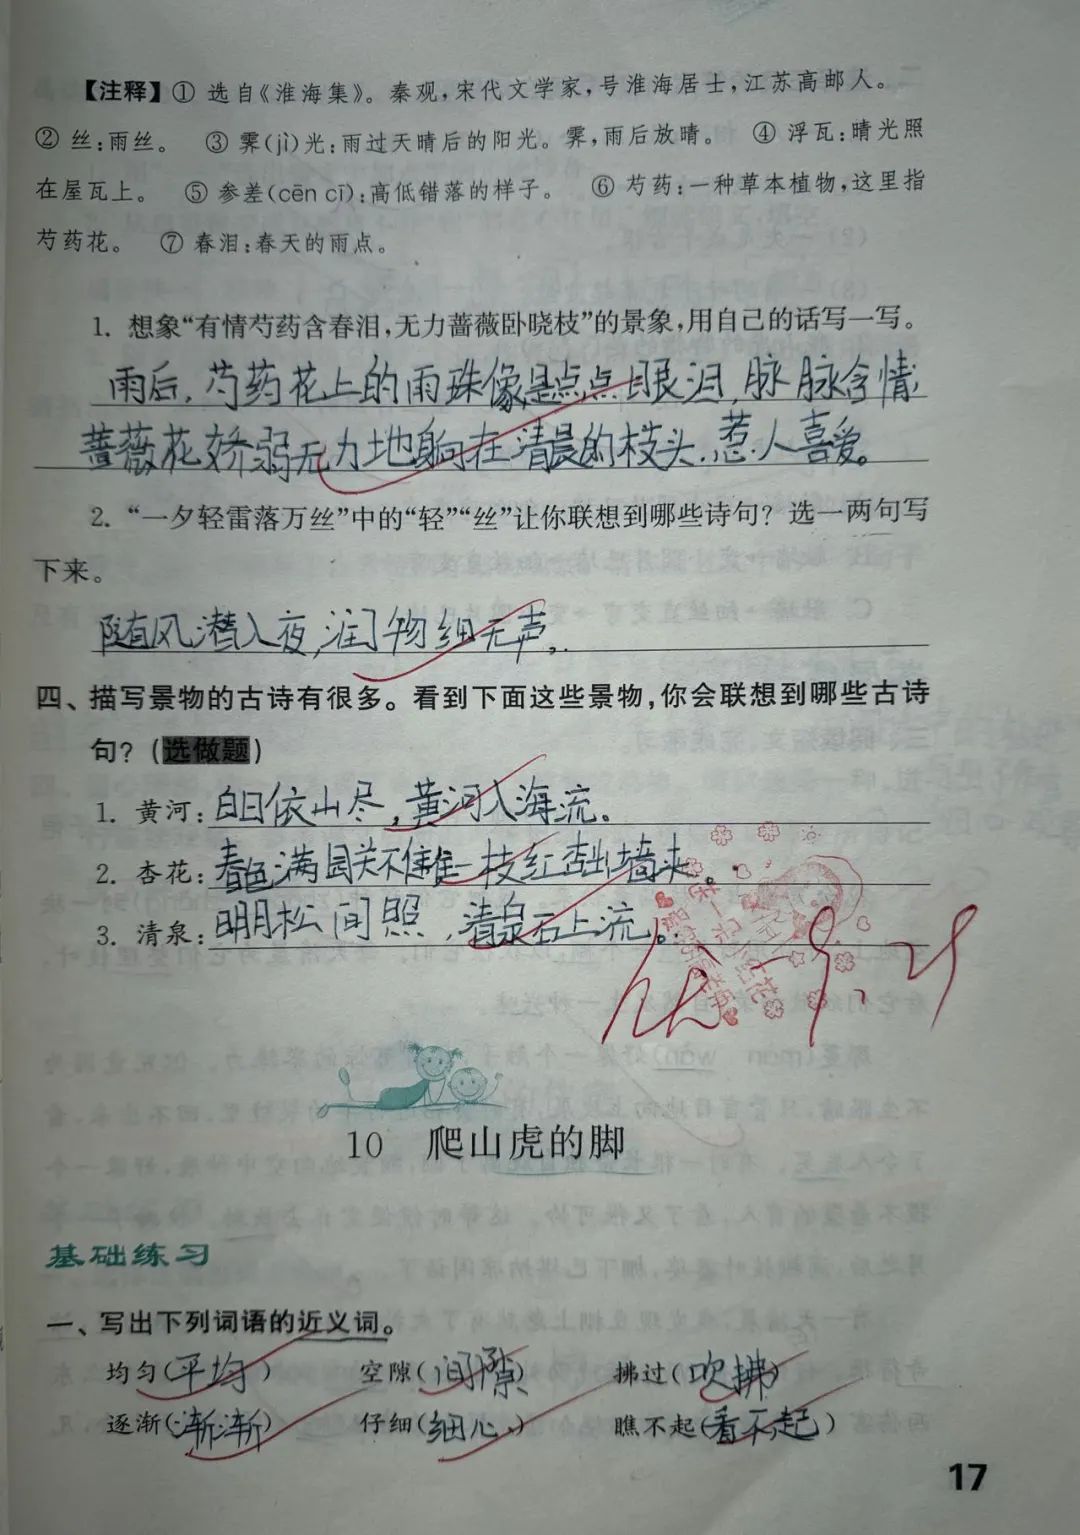 【注释】① 选自《淮海集》。秦观,宋代文学家,号淮海居士,江苏高邮人。
② 丝:雨丝。 ③ 霁(jì)光:雨过天晴后的阳光。霁,雨后放晴。 ④ 浮瓦:晴光照
在屋瓦上。 ⑤ 参差(cēn cī):高低错落的样子。 ⑥ 芍药:一种草本植物,这里指
芍药花。 ⑦ 春泪:春天的雨点。
1. 想象“有情芍药含春泪,无力蔷薇卧晓枝”的景象,用自己的话写一写。
雨后,芍药花上的雨珠像是点点眼泪,脉脉含情
蔷薇花娇弱无力地躺在清晨的枝头,惹人喜爱。
2. “一夕轻雷落万丝”中的“轻”“丝”让你联想到哪些诗句? 选一两句写
下来。
随风潜入夜,润物细无声。
四、描写景物的古诗有很多。看到下面这些景物,你会联想到哪些古诗
句?(选做题)
1. 黄河:白日依山尽,黄河入海流。
2. 杏花:春色满园关不住,一枝红杏出墙来。
3. 清泉:明月松间照,清泉石上流。
优 9.21
10 爬山虎的脚
基础练习
一、写出下列词语的近义词。
均匀(平均) 空隙(间隙) 拂过(吹拂)
逐渐(渐渐) 仔细(细心) 瞧不起(看不起)
17